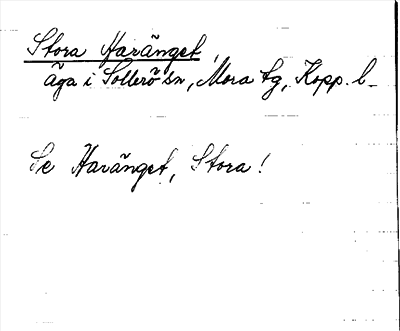 Stora Haränget,
äga i Sollerö sn, Mora tg, Kopp. l.
Se Haränget, Stora!